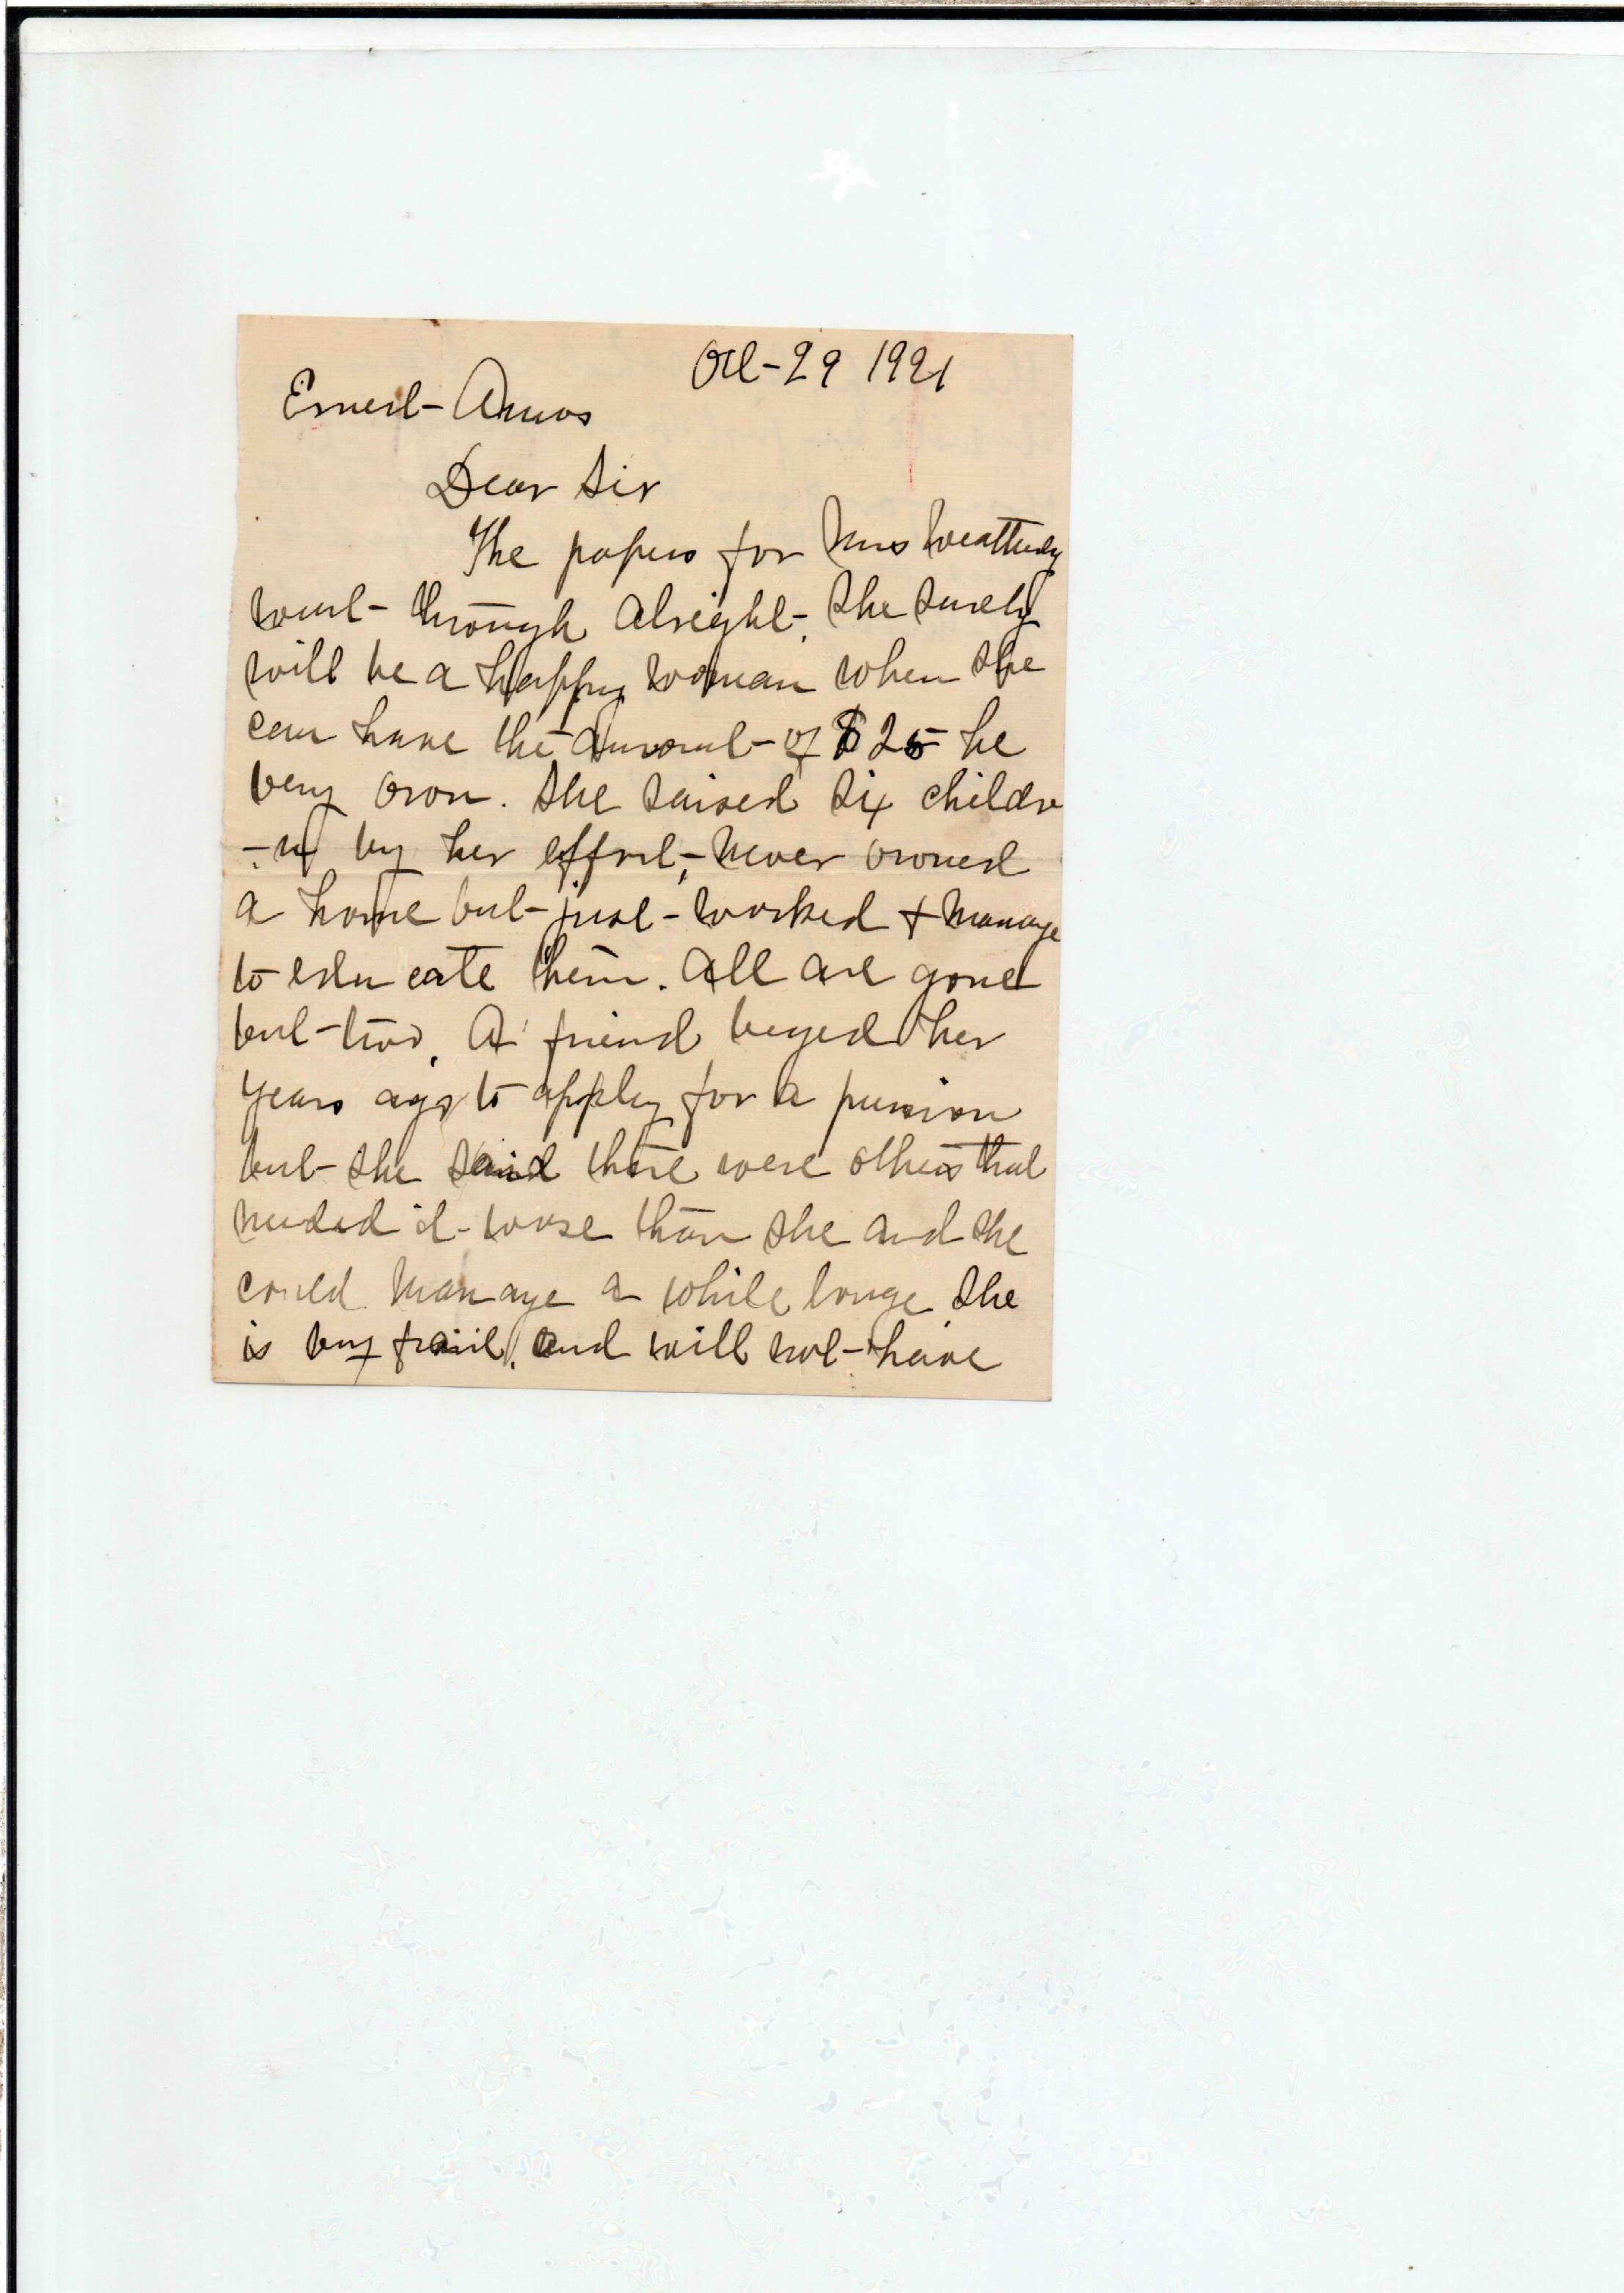 Oct-29 1921
Ernest-Amos
Dear Sir
The papers for Mrs Weatherly
went-through alright-. She surely
will be a happy woman when she
can have the amount-of $25 he
very own. She raised six childre
-n by her effort,-never owned
a home but-just-worked + manage
to educate them. All are gone
but-two. A friend beged her
years ago to apply for a pension
but-she said there were others that
needed it-worse than she and she
could manage a while longe she
is very frail, and will not-have